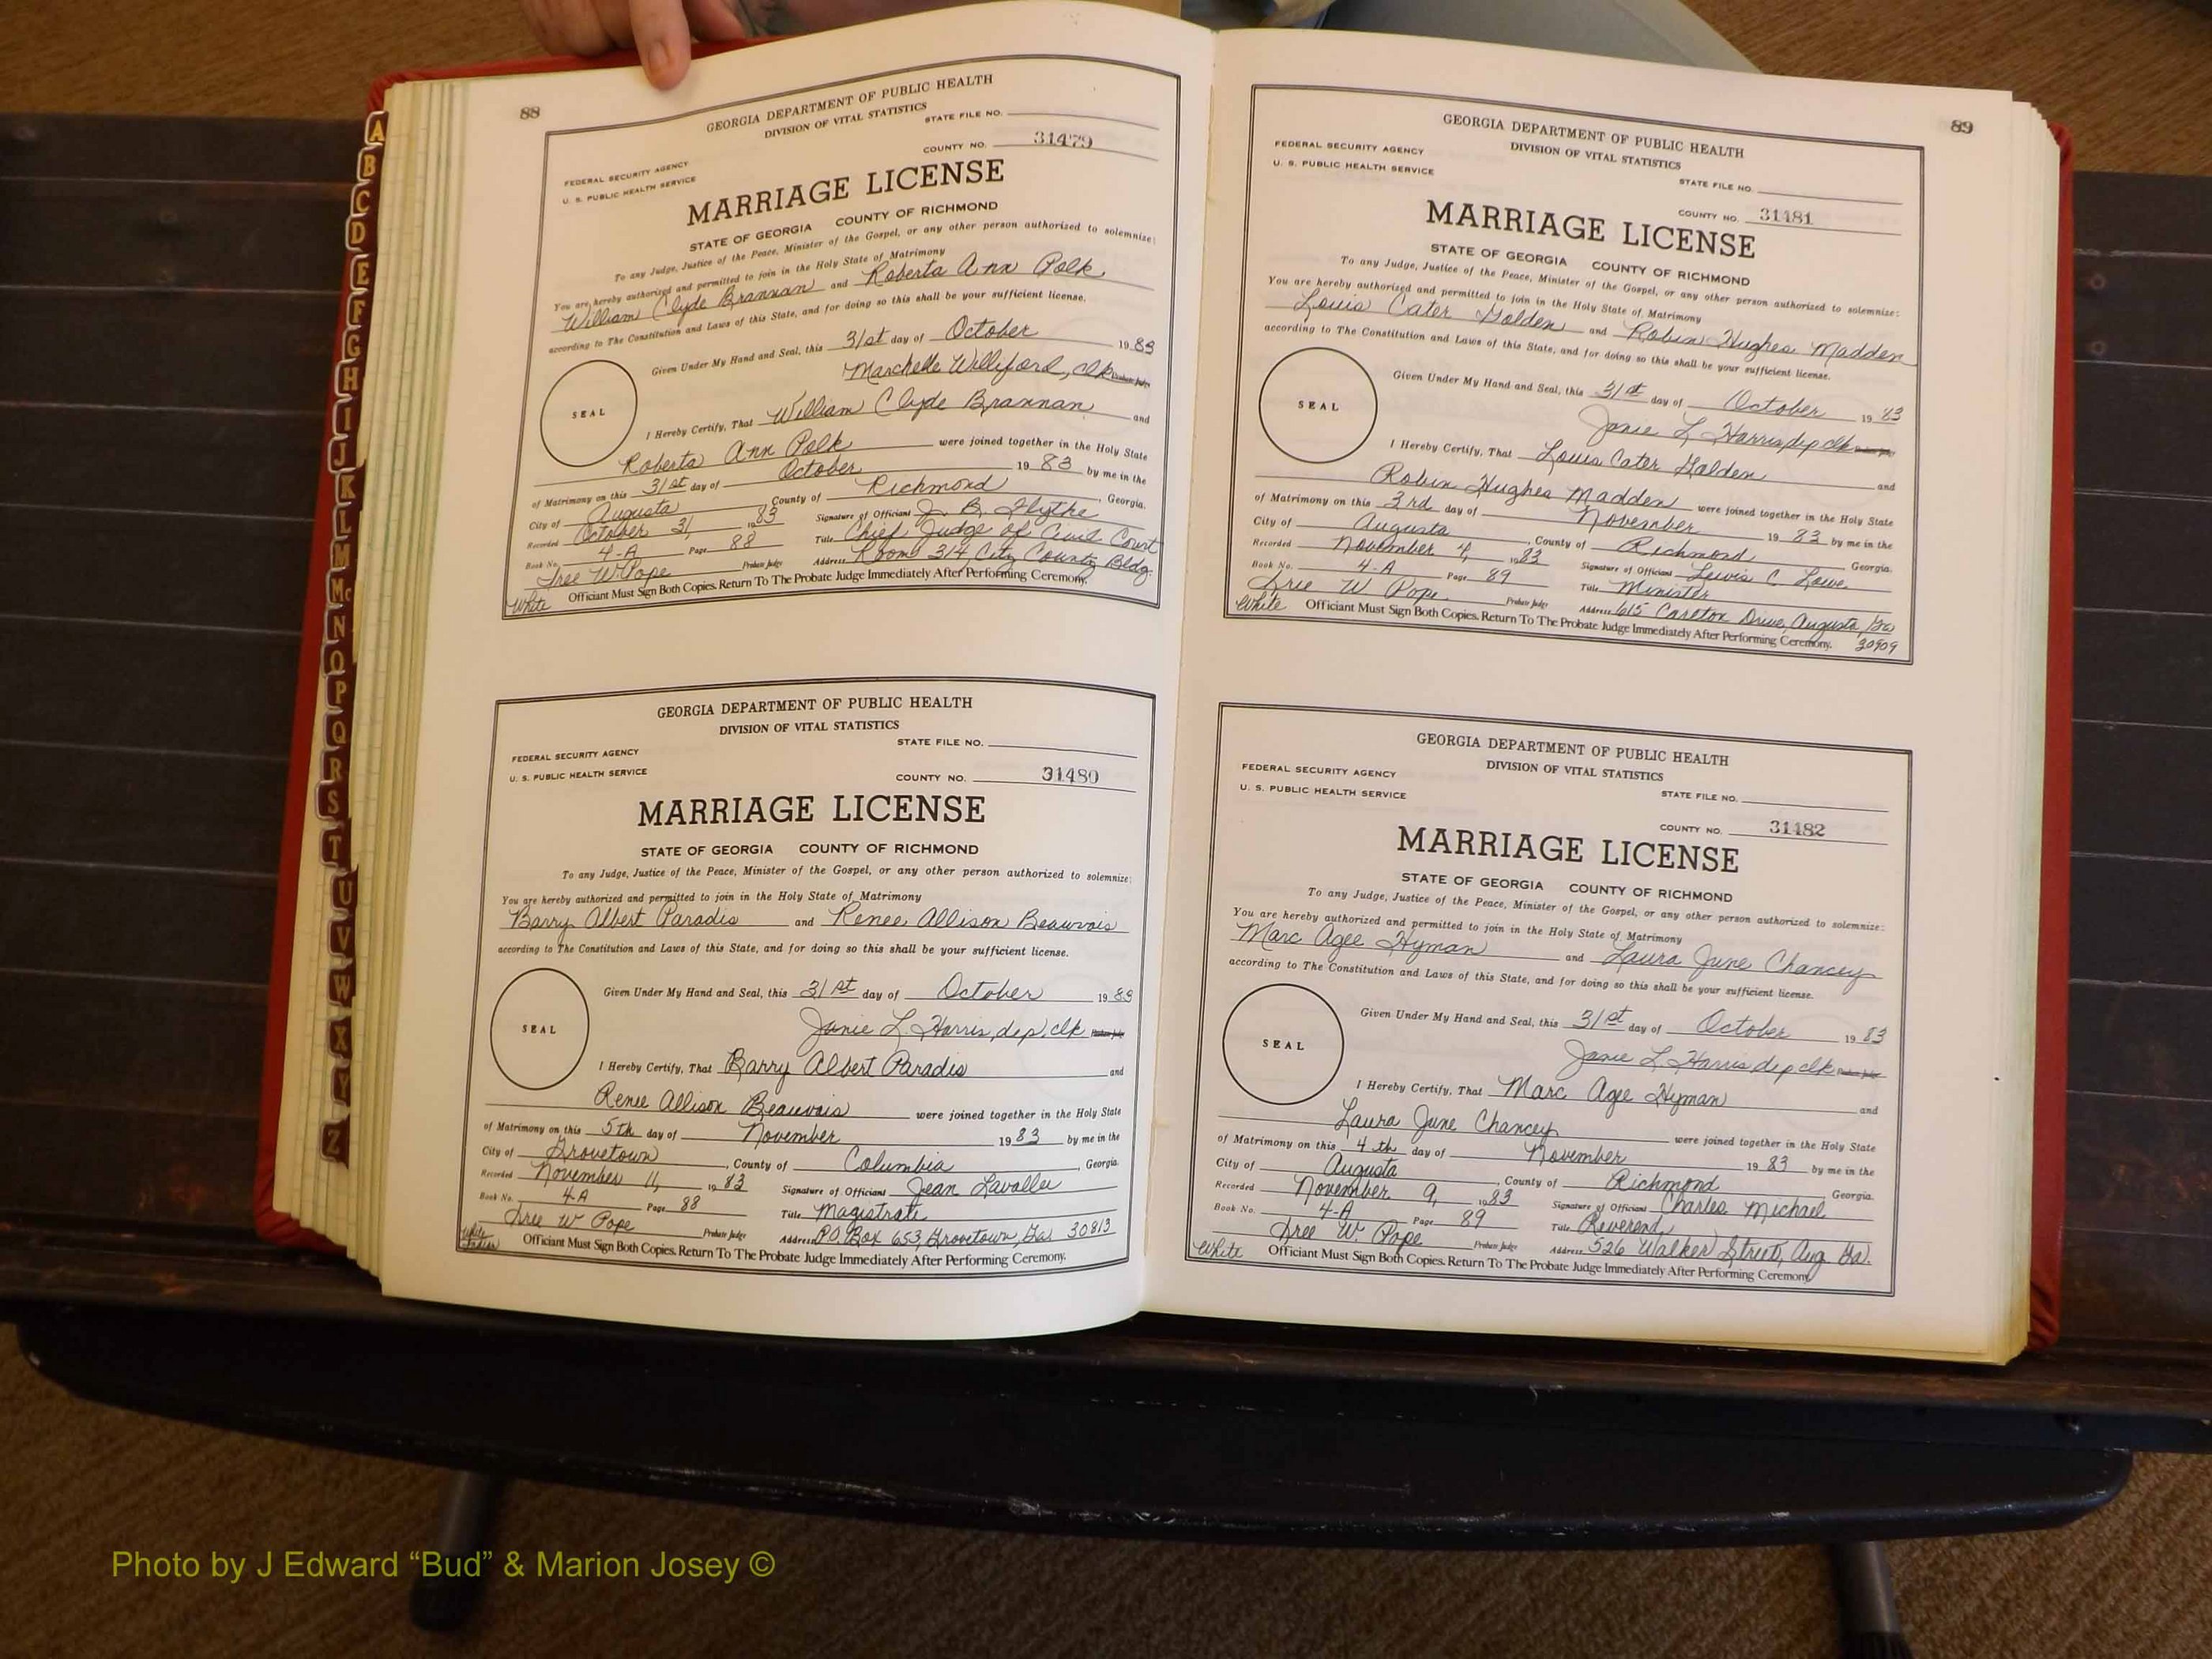 A
B
C
D
E
F
G
H
I
J
K
L
M
Mc
N
O
P
Q
R
S
T
U
V
W
X
Y
Z
88
GEORGIA DEPARTMENT OF PUBLIC HEALTH
DIVISION OF VITAL STATISTICS
STATE FILE NO.
COUNTY NO. 31479
FEDERAL SECURITY AGENCY
U. S. PUBLIC HEALTH SERVICE
MARRIAGE LICENSE
STATE OF GEORGIA COUNTY OF RICHMOND
To any Judge, Justice of the Peace, Minister of the Gospel, or any other person authorized to solemnize:
You are hereby authorized and permitted to join in the Holy State of Matrimony
William Clyde Brannan and Roberta Ann Polk
according to The Constitution and Laws of this State, and for doing so this shall be your sufficient license.
Given Under My Hand and Seal, this 31st day of October 1983
Marchelle Williford, clk Probate Judge
SEAL
I Hereby Certify, That William Clyde Brannan and
Roberta Ann Polk were joined together in the Holy State
of Matrimony on this 31st day of October 1983 by me in the
City of Augusta County of Richmond, Georgia.
Recorded October 31, 1983 Signature of Officiant J. B. Flythe
Book No. 4-A Page 88 Title Chief Judge of Civil Court
Free W. Pope Probate Judge Address Room 314, City County Bldg.
White Officiant Must Sign Both Copies. Return To The Probate Judge Immediately After Performing Ceremony.
GEORGIA DEPARTMENT OF PUBLIC HEALTH
DIVISION OF VITAL STATISTICS
STATE FILE NO.
FEDERAL SECURITY AGENCY
U. S. PUBLIC HEALTH SERVICE
COUNTY NO. 31480
MARRIAGE LICENSE
STATE OF GEORGIA COUNTY OF RICHMOND
To any Judge, Justice of the Peace, Minister of the Gospel, or any other person authorized to solemnize:
You are hereby authorized and permitted to join in the Holy State of Matrimony
Barry Albert Paradis and Renee Allison Beauvais
according to The Constitution and Laws of this State, and for doing so this shall be your sufficient license.
Given Under My Hand and Seal, this 31st day of October 1983
Janie L. Harris, dep. clk Probate Judge
SEAL
I Hereby Certify, That Barry Albert Paradis and
Renee Allison Beauvais were joined together in the Holy State
of Matrimony on this 5th day of November 1983 by me in the
City of Grovetown, County of Columbia, Georgia.
Recorded November 11, 1983 Signature of Officiant Jean Lavallee
Book No. 4-A Page 88 Title Magistrate
Free W Pope Probate Judge Address P.O. Box 653, Grovetown, Ga 30813
White Officiant Must Sign Both Copies. Return To The Probate Judge Immediately After Performing Ceremony.
89
GEORGIA DEPARTMENT OF PUBLIC HEALTH
DIVISION OF VITAL STATISTICS
FEDERAL SECURITY AGENCY
U. S. PUBLIC HEALTH SERVICE
STATE FILE NO.
COUNTY NO. 31481
MARRIAGE LICENSE
STATE OF GEORGIA COUNTY OF RICHMOND
To any Judge, Justice of the Peace, Minister of the Gospel, or any other person authorized to solemnize:
You are hereby authorized and permitted to join in the Holy State of Matrimony
Louis Cater Golden and Robin Hughes Madden
according to The Constitution and Laws of this State, and for doing so this shall be your sufficient license.
Given Under My Hand and Seal, this 31st day of October 1983
Janie L. Harris, dep clk Probate Judge
SEAL
I Hereby Certify, That Louis Cater Golden and
Robin Hughes Madden were joined together in the Holy State
of Matrimony on this 3rd day of November 1983 by me in the
City of Augusta, County of Richmond Georgia.
Recorded November 4, 1983 Signature of Officiant Lewis C. Lowe
Book No. 4-A Page 89 Title Minister
Free W Pope Probate Judge Address 615 Carlton Drive, Augusta, Ga
White Officiant Must Sign Both Copies. Return To The Probate Judge Immediately After Performing Ceremony. 30909
GEORGIA DEPARTMENT OF PUBLIC HEALTH
DIVISION OF VITAL STATISTICS
FEDERAL SECURITY AGENCY
U. S. PUBLIC HEALTH SERVICE
STATE FILE NO.
COUNTY NO. 31482
MARRIAGE LICENSE
STATE OF GEORGIA COUNTY OF RICHMOND
To any Judge, Justice of the Peace, Minister of the Gospel, or any other person authorized to solemnize:
You are hereby authorized and permitted to join in the Holy State of Matrimony
Marc Agee Hyman and Laura June Chancey
according to The Constitution and Laws of this State, and for doing so this shall be your sufficient license.
Given Under My Hand and Seal, this 31st day of October 1983
Janie L. Harris, dep clk Probate Judge
SEAL
I Hereby Certify, That Marc Agee Hyman and
Laura June Chancey were joined together in the Holy State
of Matrimony on this 4th day of November 1983 by me in the
City of Augusta, County of Richmond Georgia.
Recorded November 9, 1983 Signature of Officiant Charles Michael
Book No. 4-A Page 89 Title Reverend
Free W. Pope Probate Judge Address 526 Walker Street, Aug. Ga.
White Officiant Must Sign Both Copies. Return To The Probate Judge Immediately After Performing Ceremony
Photo by J Edward “Bud” & Marion Josey ©